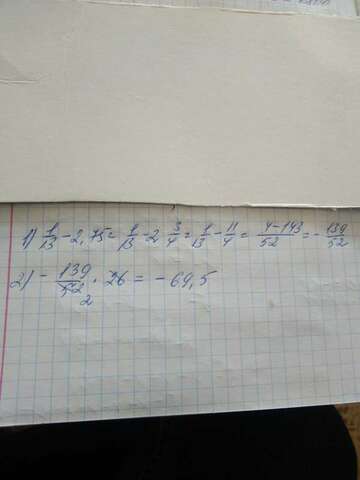 1) 1/13 - 2,75 = 1/13 - 2 3/4 = 1/13 - 11/4 = 4-143/52 = - 139/52
2) - 139/52 2 · 26 = - 69,5